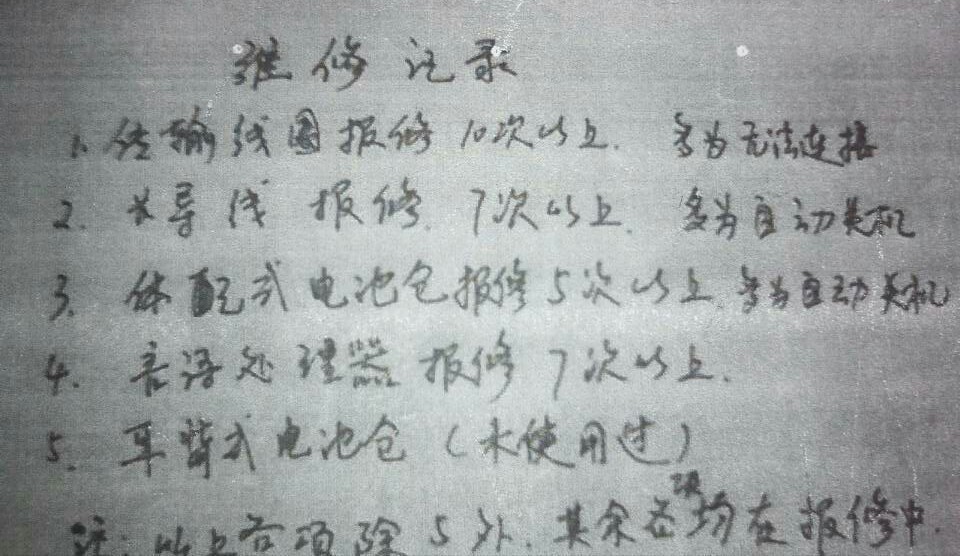 维修记录
1. 传输线圈报修10次以上. 多为无法连接
2. 长导线 报修. 7次以上. 多为自动关机
3. 体配式电池仓报修5次以上. 多为自动关机
4. 言语处理器 报修 7次以上.
5. 耳背式电池仓 (未使用过)
注: 以上各项除5外. 其余各项均在报修中.